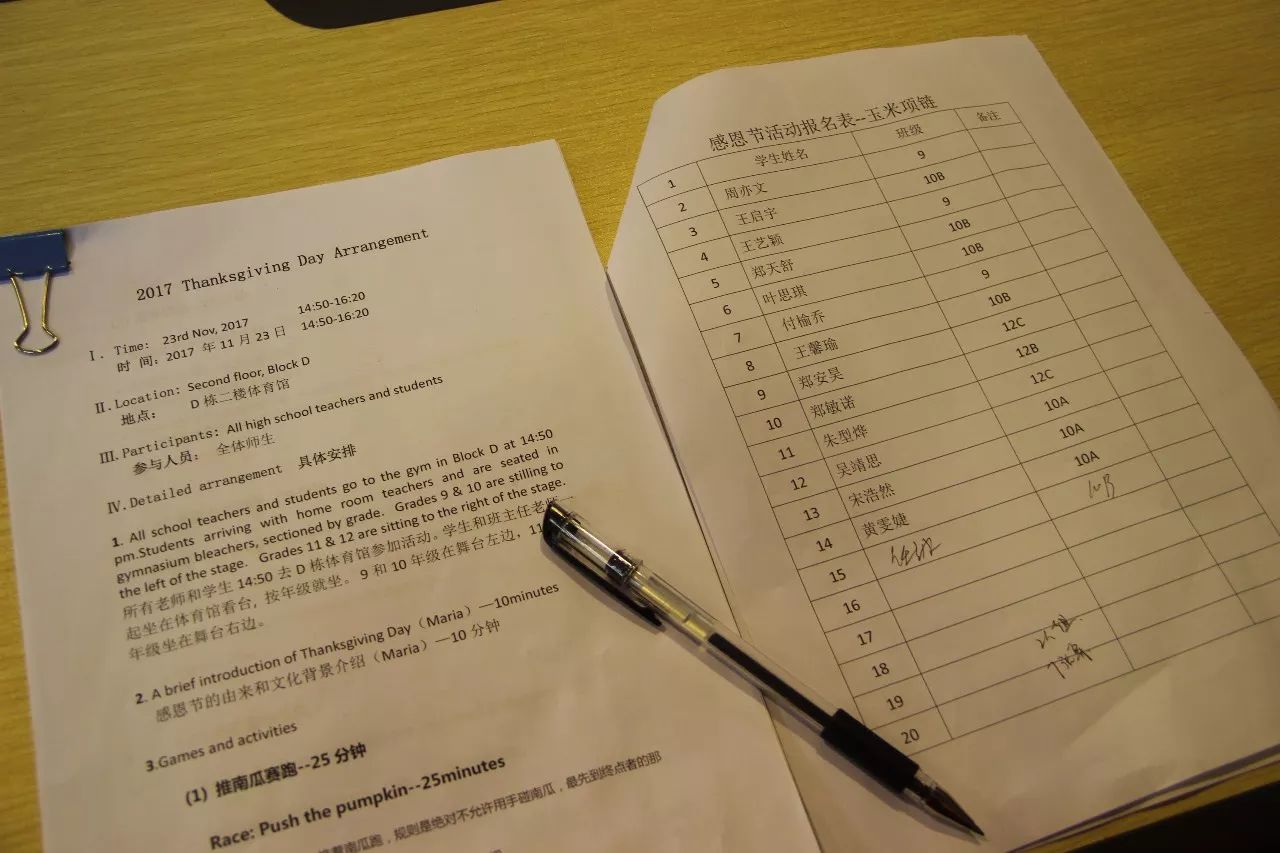 2017 Thanksgiving Day Arrangement
Ⅰ. Time: 23rd Nov, 2017 14:50-16:20
时 间: 2017 年 11 月 23 日 14:50-16:20
Ⅱ. Location: Second floor, Block D
地点: D 栋二楼体育馆
Ⅲ. Participants: All high school teachers and students
参与人员: 全体师生
Ⅳ. Detailed arrangement 具体安排
1. All school teachers and students go to the gym in Block D at 14:50
pm.Students arriving with home room teachers and are seated in
gymnasium bleachers, sectioned by grade. Grades 9 & 10 are stilling to
the left of the stage. Grades 11 & 12 are sitting to the right of the stage.
所有老师和学生 14:50 去 D 栋体育馆参加活动。学生和班主任老师一
起坐在体育馆看台, 按年级就坐。9 和 10 年级在舞台左边, 11
年级坐在舞台右边。
2. A brief introduction of Thanksgiving Day（Maria）—10minutes
感恩节的由来和文化背景介绍（Maria）—10 分钟
3.Games and activities
(1) 推南瓜赛跑--25 分钟
Race: Push the pumpkin--25minutes
南瓜跑，规则是绝对不允许用手碰南瓜，最先到终点者的那
感恩节活动报名表--玉米项链
1 学生姓名 班级 备注
2 周亦文 9
3 王启宇 10B
4 王艺颖 9
5 郑天舒 10B
6 叶思琪 10B
7 付榆乔 9
8 王馨瑜 10B
9 郑安昊 12C
10 郑敏诺 12B
11 朱型烨 12C
12 吴靖思 10A
13 宋浩然 10A
14 黄雯婕 10A
15 10B
16
17
18
19
20